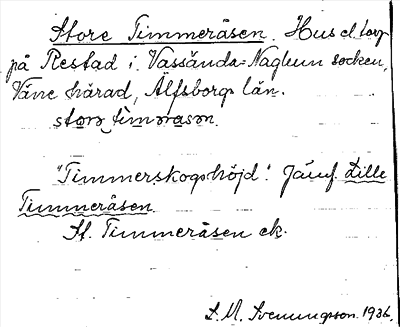 Store Timmeråsen. Hus el. torp
på Restad i Vassända-Naglum socken,
Väne härad, Älfsborgs län.
"Timmerskogshöjd". Jämf. Lille
Timmeråsen.
St. Timmeråsen ek.
S. M. Svenungsson. 1936.